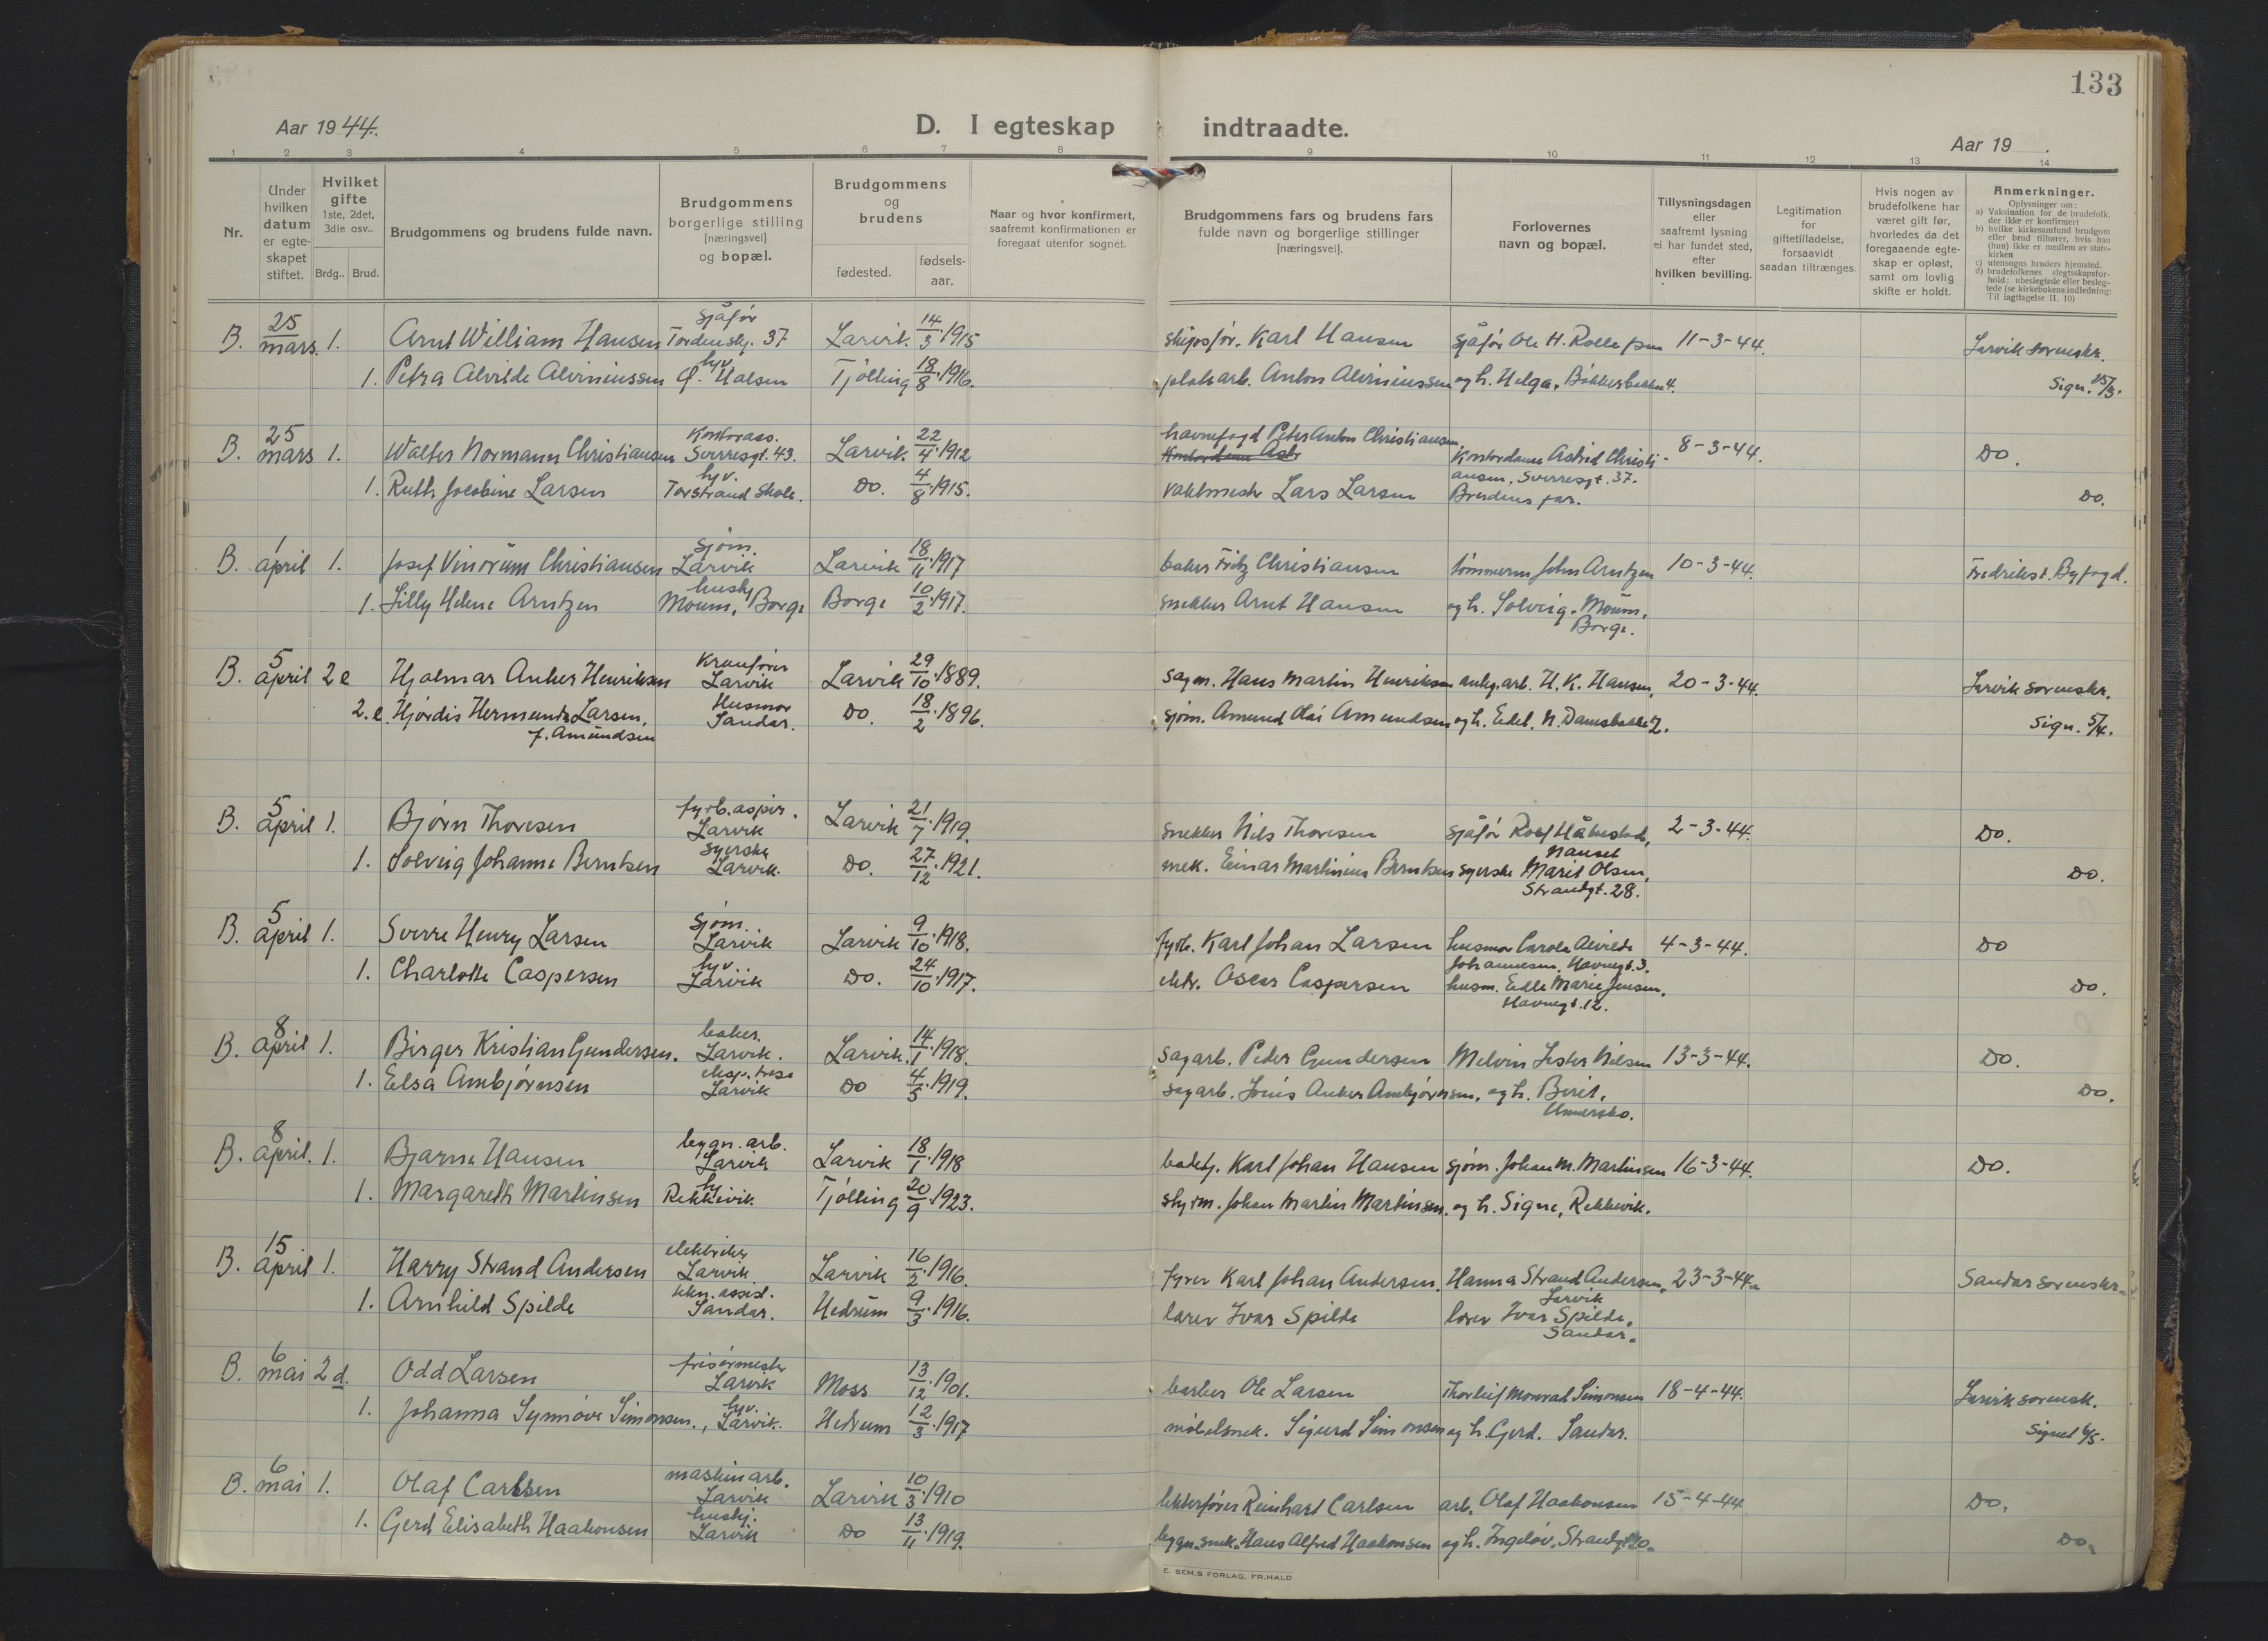 133
Aar 1944.
D. I egteskap indtraadte.
Aar 19 .
1 2 3 4 5 6 7 8 9 10 11 12 13 14
Nr.
Under hvilken datum er egte-skapet stiftet.
Hvilket gifte 1ste, 2det, 3die osv..
Brdg.. Brud.
Brudgommens og brudens fulde navn.
Brudgommens borgerlige stilling [næringsvei] og bopæl.
Brudgommens og brudens
fødested.
fødsels-aar.
Naar og hvor konfirmert, saafremt konfirmationen er foregaat utenfor sognet.
Brudgommens fars og brudens fars fulde navn og borgerlige stillinger [næringsvei].
Forlovernes navn og bopæl.
Tillysningsdagen eller saafremt lysning ei har fundet sted, efter hvilken bevilling.
Legitimation for giftetilladelse, forsaavidt saadan tiltrænges.
Hvis nogen av brudefolkene har været gift før, hvorledes da det foregaaende egte-skap er opløst, samt om lovlig skifte er holdt.
Anmerkninger.
Oplysninger om:
a) Vaksination for de brudefolk, der ikke er konfirmert
b) hvilke kirkesamfund brudgom eller brud tilhører, hvis han (hun) ikke er medlem av stats-kirken
c) utensogns bruders hjemsted.
d) brudefolkenes slegtsskapsfor-hold: ubeslegtede eller besleg-tede (se kirkebokens indledning: Til iagttagelse II. 10)
B. 25 mars. 1. Arnt William Hansen sjåfør Tordenskj. 37 Larvik. 14/3 1915 skipsfør. Karl Hansen sjåfør Ole H. Rolle 11-3-44. Larvik sorenskr.
1. Petra Alvilde Alviniussen hv. Ø. Halsen Tjølling 18/8 1916. Anton Alviniussen og h. Helga, Bøkkerbakken 4. Sign. 25/3.
B. 25 mars 1. Walter Normann Christiansen Kontorass. Sverresgt. 43. Larvik 22/4 1912 havnefogd Peter Anton Christiansen Kontordame Astrid Christi- 8-3-44. Do.
1. Ruth Jacobine Larsen hv. Torstrand Skole. Do. 4/8 1915. vaktmestr Lars Larsen ansen, Sverresgt. 37. Brudens far. Do.
B. 1 april 1. Josef Vinorum Christiansen sjøm. Larvik Larvik 18/11 1917 baker Fritz Christiansen tømmerm John Arntzen 10-3-44. Fredrikst. Byfogd.
1. Lilly Helene Arntzen hushj Moum, Borge Borge 10/2 1917. snekker Arnt Hansen og h. Solveig, Moum, Borge.
B. 5 april 2 e Hjalmar Anker Henriksen Kranfører Larvik Larvik 29/10 1889. sagm. Hans Martin Henriksen anleg.arb. H. K. Hansen, 20-3-44. Larvik sorenskr.
2. e. Hjørdis Larsen, f. Amundsen Husmor Sandar. Do. 18/2 1896. sjøm. Amund Olai Amundsen og h. Edel, N. Damsbakke 2. Sign. 5/4.
B. 5 april 1. Bjørn Thoresen fyrb. aspir. Larvik Larvik 21/7 1919. snekker Nils Thoresen sjåfør Rolf Håkestad, Nanset 2-3-44. Do.
1. Solveig Johanne Berntsen syerske Larvik. Do. 27/12 1921. mek. Einar Martinius Berntsen syerske Marit Olsen, Strandgt. 28. Do.
B. 5 april 1. Sverre Henry Larsen sjøm. Larvik Larvik 9/10 1918. fyrb. Karl Johan Larsen husmor Carola Alvilde Johannesen, Havnegt. 3. 4-3-44. Do
1. Charlotte Caspersen hv. Larvik Do. 24/10 1917. elektr. Oscar Caspersen husm. Edle Marie Jensen, Havnegt. 12. Do.
B. 8 april 1. Birger Kristian Gundersen. baker. Larvik. Larvik. 14/1 1918. sagarb. Peder Gundersen Melvin Lester Nilsen 13-3-44. Do.
1. Elsa Ambjørnsen eksp. trise Larvik Do 4/5 1919. sagarb. Anker Ambjørnsen, og h. Berit, Do.
B. 8 april. 1. Bjarne Hansen bygn. arb. Larvik Larvik 18/1 1918 Karl Johan Hansen sjøm. Johan M. Martinsen 16-3-44. Do.
1. Margareth Martinsen hj Rekkevik. Tjølling 20/9 1923. styrm. Johan Martin Martinsen, og h. Signe, Rekkevik.
B. 15 april 1. Harry Strand Andersen elektriker Larvik Larvik 16/2 1916. fyrer Karl Johan Andersen. Hanna Strand Andersen, Larvik 23-3-44. Sandar sorenskr.
1. Arnhild Spilde tekn. assist. Sandar. Hedrum 9/3 1916. lærer Ivar Spilde lærer Ivar Spilde, Sandar.
B. 6 mai 2 d. Odd Larsen frisørmester Larvik Moss 13/12 1901. barber Ole Larsen Thorleif Monrad Simonsen 18-4-44. Larvik sorensk.
1. Johanna Synnøve Simonsen., hv. Larvik. Hedrum 12/3 1917 møbelsnek. Sigurd Simonsen og h. Gerd. Sandar. Signet 6/5.
B. 6 mai 1. Olaf Carlsen maskinarb. Larvik Larvik 10/3 1910 lekterfører Reinhart Carlsen arb. Olaf Haakonsen 15-4-44 Do.
1. Gerd Elisabeth Haakonsen hushj. Larvik Do 13/11 1919. bygn. snek. Hans Alfred Haakonsen og h. Ingeløv, Strandgt 20. Do.
E. SEM,S FORLAG, FR.HALD